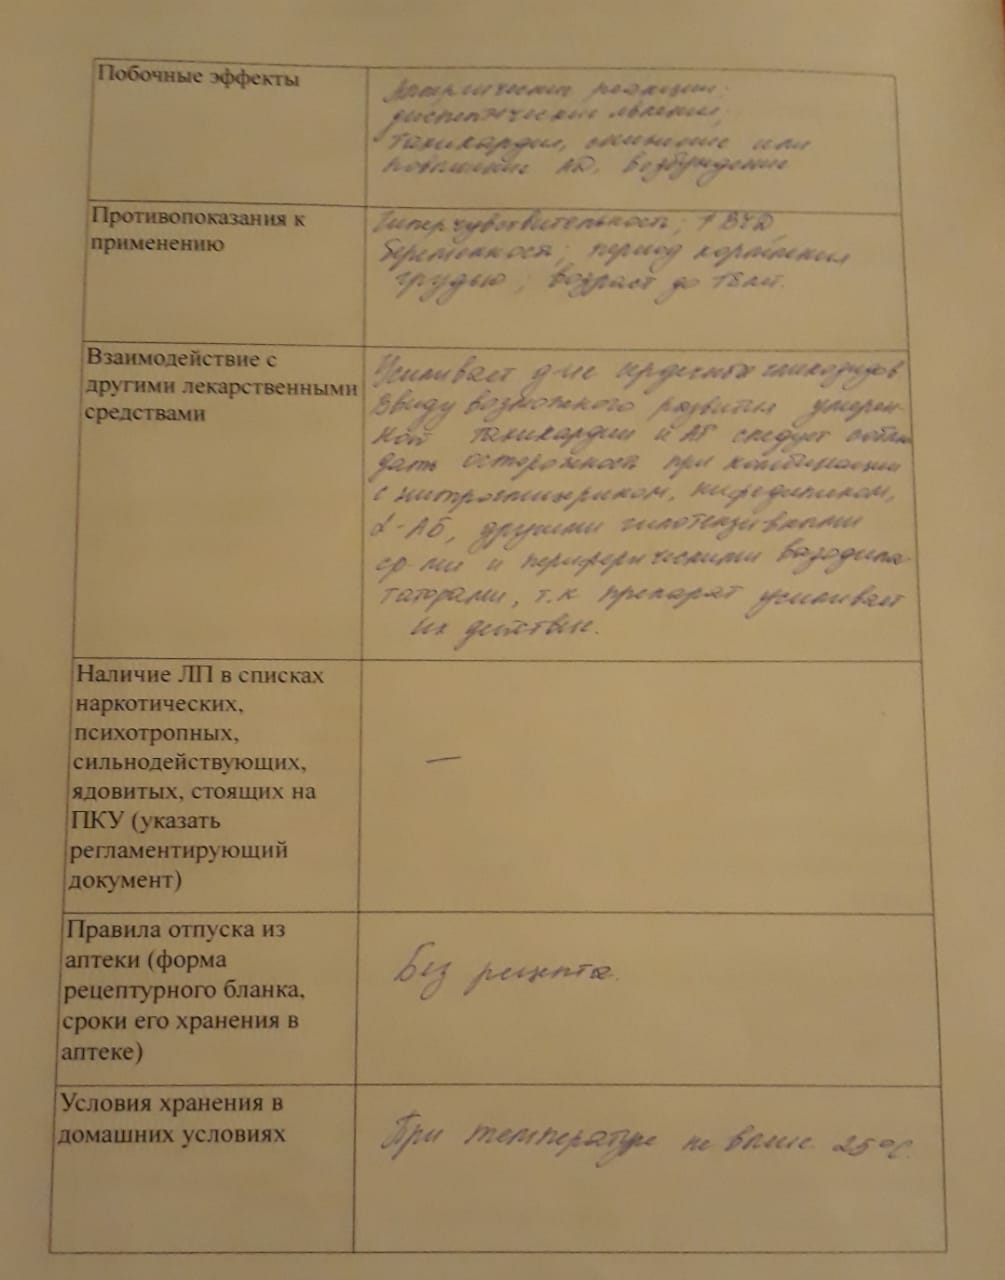 Побочные эффекты
Аллергические реакции;
диспептические явления,
тахикардия, снижение или
повышение АД, возбуждение
Противопоказания к
применению
Гиперчувствительность; ↑ ВЧД
беременность; период кормления
грудью; возраст до 18 лет.
Взаимодействие с
другими лекарственными
средствами
Усиливает д-ие сердечных гликозидов
Ввиду возможного развития умерен-
ной тахикардии и АГ следует соблю
дать осторожность при комбинации
с нитроглицерином, нифедипином,
ср-ми и периферическими вазодила-
таторами, т.к препарат усиливает
их действие.
α-АБ, другими гипотензивными
Наличие ЛП в списках
наркотических,
психотропных,
сильнодействующих,
ядовитых, стоящих на
ПКУ (указать
регламентирующий
документ)
—
Правила отпуска из
аптеки (форма
рецептурного бланка,
сроки его хранения в
аптеке)
Без рецепта.
Условия хранения в
домашних условиях
При температуре не выше 25°С.